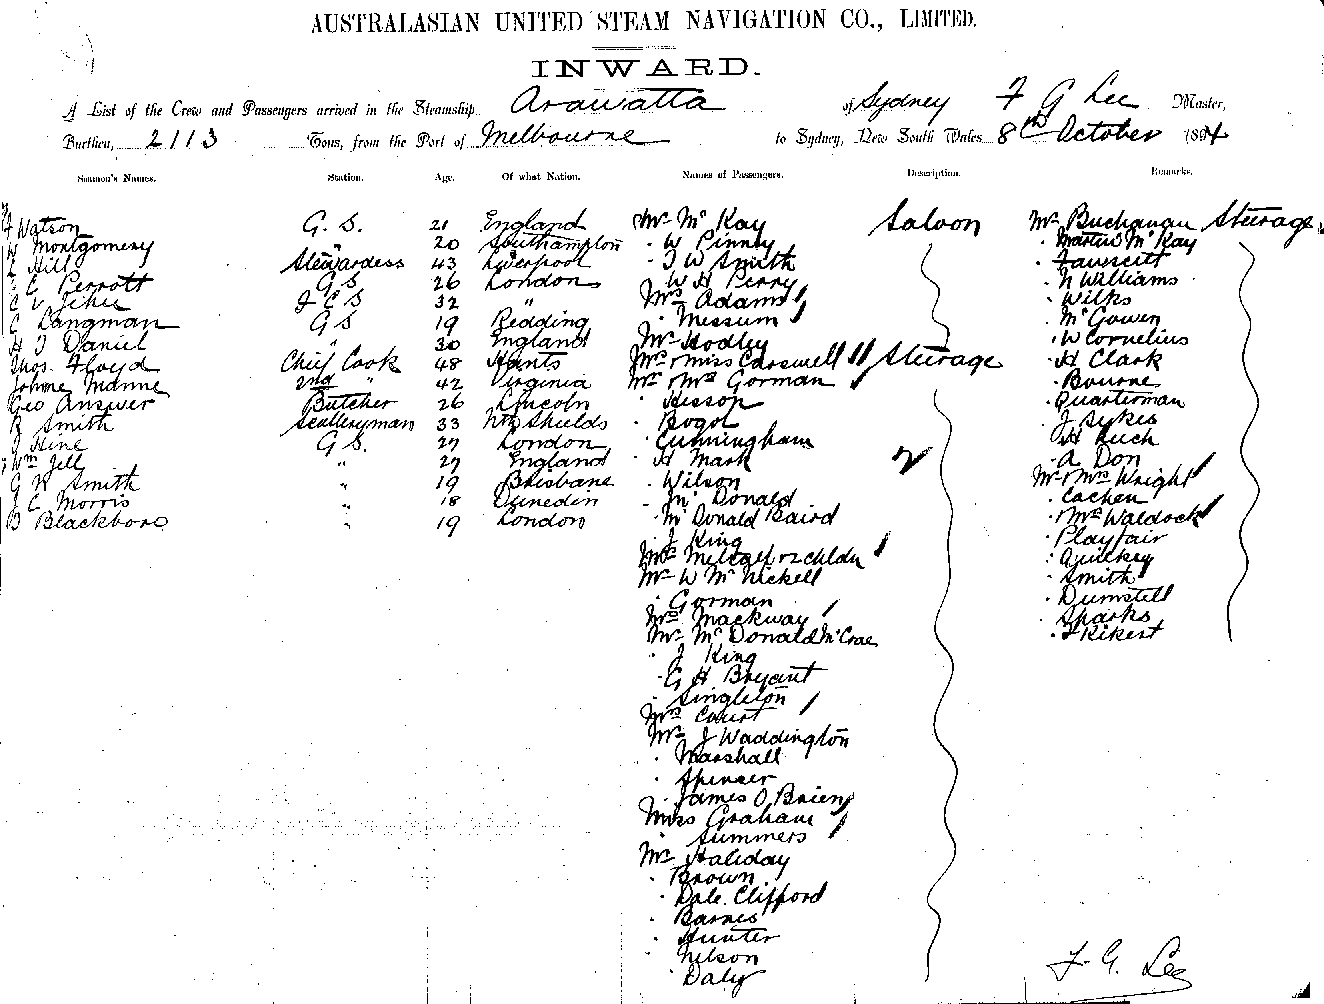 AUSTRALASIAN UNITED STEAM NAVIGATION CO., LIMITED.
INWARD.
A List of the Crew and Passengers arrived in the Steamship Arawatta of Sydney F G Lee Master,
Burthen, 2113 Tons, from the Port of Melbourne to Sydney, New South Wales 8th October 1894
Seamen's Names. Station. Age. Of what Nation. Names of Passengers. Description. Remarks.
F Watson G. S. 21 England
W Montgomery " 20 Southampton
Hill Stewardess 43 Liverpool
C Perrott G S 26 London
C V 32 "
C Langman G S 19 Redding
H J Daniel " 30 England
Thos. Floyd Chief Cook 48 Hants
Johnne Manne 2nd " 42 Virginia
Geo Answer Butcher 26 Lincoln
R Smith Sculleryman 33 Nth Shields
J Hine G S. 27 London
Wm Jell " 27 England
G H Smith " 19 Brisbane
J C Morris " 18 Dunedin
B Blackbore " 19 London
Mr McKay Saloon
" W Pinnby
" J W Smith
" W H Perry
Mrs Adams
" Messum
Mr Hodley
Mrs & Miss Carswell Steerage
Mr & Mrs Gorman
" Hisson
" Bogot
" Cunningham
" H Mark
" Wilson
" McDonald
" McDonald Baird
" J King
Mrs Metcalf & 2 chldn
Mr W McNickell
" Gorman
Mrs Mackway
Mr McDonald McCrae
" J King
" G H Bryant
" Singleton
Mrs Court
Mr J Waddington
" Marshall
" Spencer
" James O Brien
Miss Graham
" Summers
Mr Haliday
" Brown
" Dale. Clifford
" Barnes
" Hunter
" Nelson
" Daly
Mr Buchanan Steerage
" Master McKay
" Fawsett
" N Williams
" Wilks
" McGowen
" W Cornelius
" H Clark
" Bourne
" Quarterman
" J Sykes
" H Luch
" A Don
Mr & Mrs Wright
" Cachen
" & Mrs Waldock
" Playfair
" Quickey
" Smith
" Dumstell
" Sparks
" F Rikert
F. G. Lee